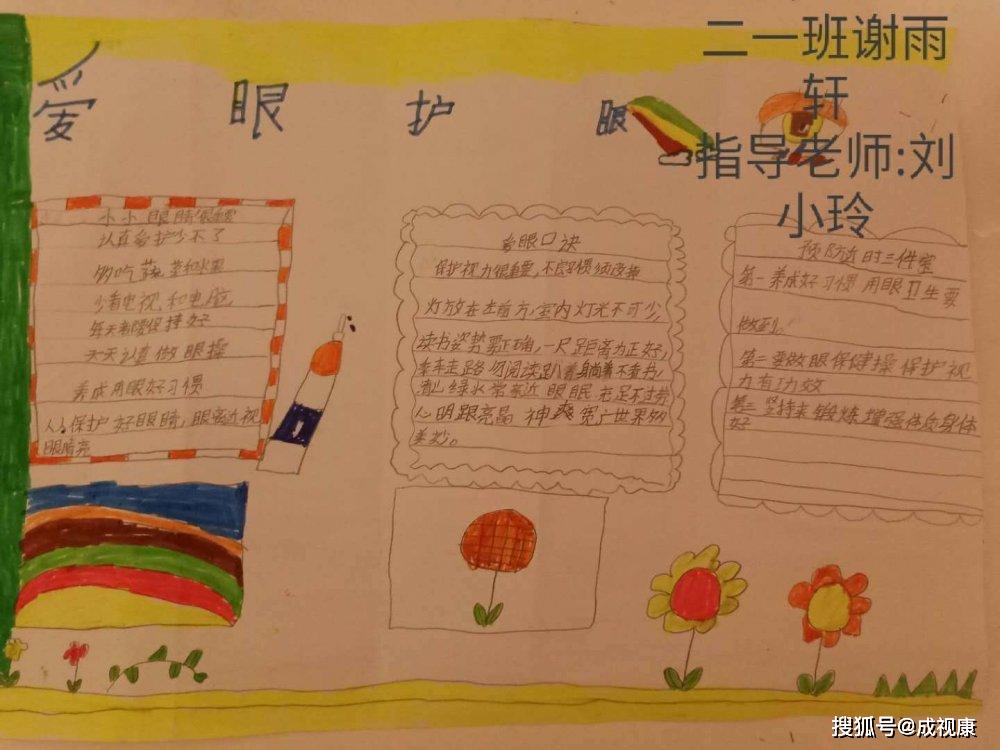 二一班谢雨
轩
指导老师:刘
小玲
爱 眼 护 眼
小小眼睛很重要
认真爱护少不了
多吃蔬菜和水果
少看电视,和电脑
每天都要保持好
天天认真做眼操
养成用眼好习惯
人人保护好眼睛,眼离近视
眼睛亮
爱眼口诀
保护视力很重要,不良习惯须改掉
灯放在左前方,室内灯光不可少,
读书姿势要正确,一尺距离为正好,
乘车走路勿阅读,趴着躺着不看书,
清山绿水常亲近 眼眠充足不过劳
心明眼亮晶 神爽 宽广世界多
美妙。
预防近时三件宝
第一养成好习惯 用眼卫生要
做到.
第二要做眼保健操保护视
力有功效
第三坚持来锻炼增强体质身体
好
搜狐号@成视康